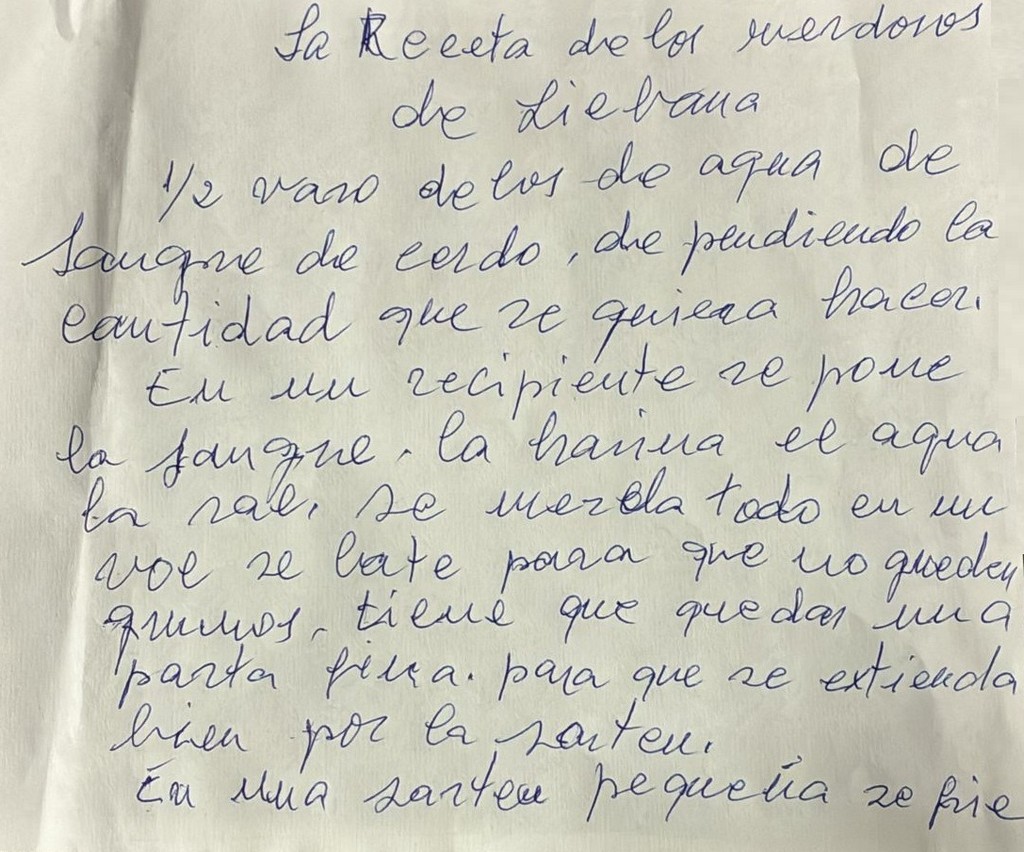 La Receta de los merdosos
de Liebana
1/2 vaso de los de agua de
sangre de cerdo, dependiendo la
cantidad que se quiera hacer.
En un recipiente se pone
la sangre. la harina el agua
la sal. se mezcla todo en un
vol se bate para que no queden
grumos. tiene que quedar una
pasta fina. para que se extienda
bien por la sarten.
En una sarten pequeña se frie